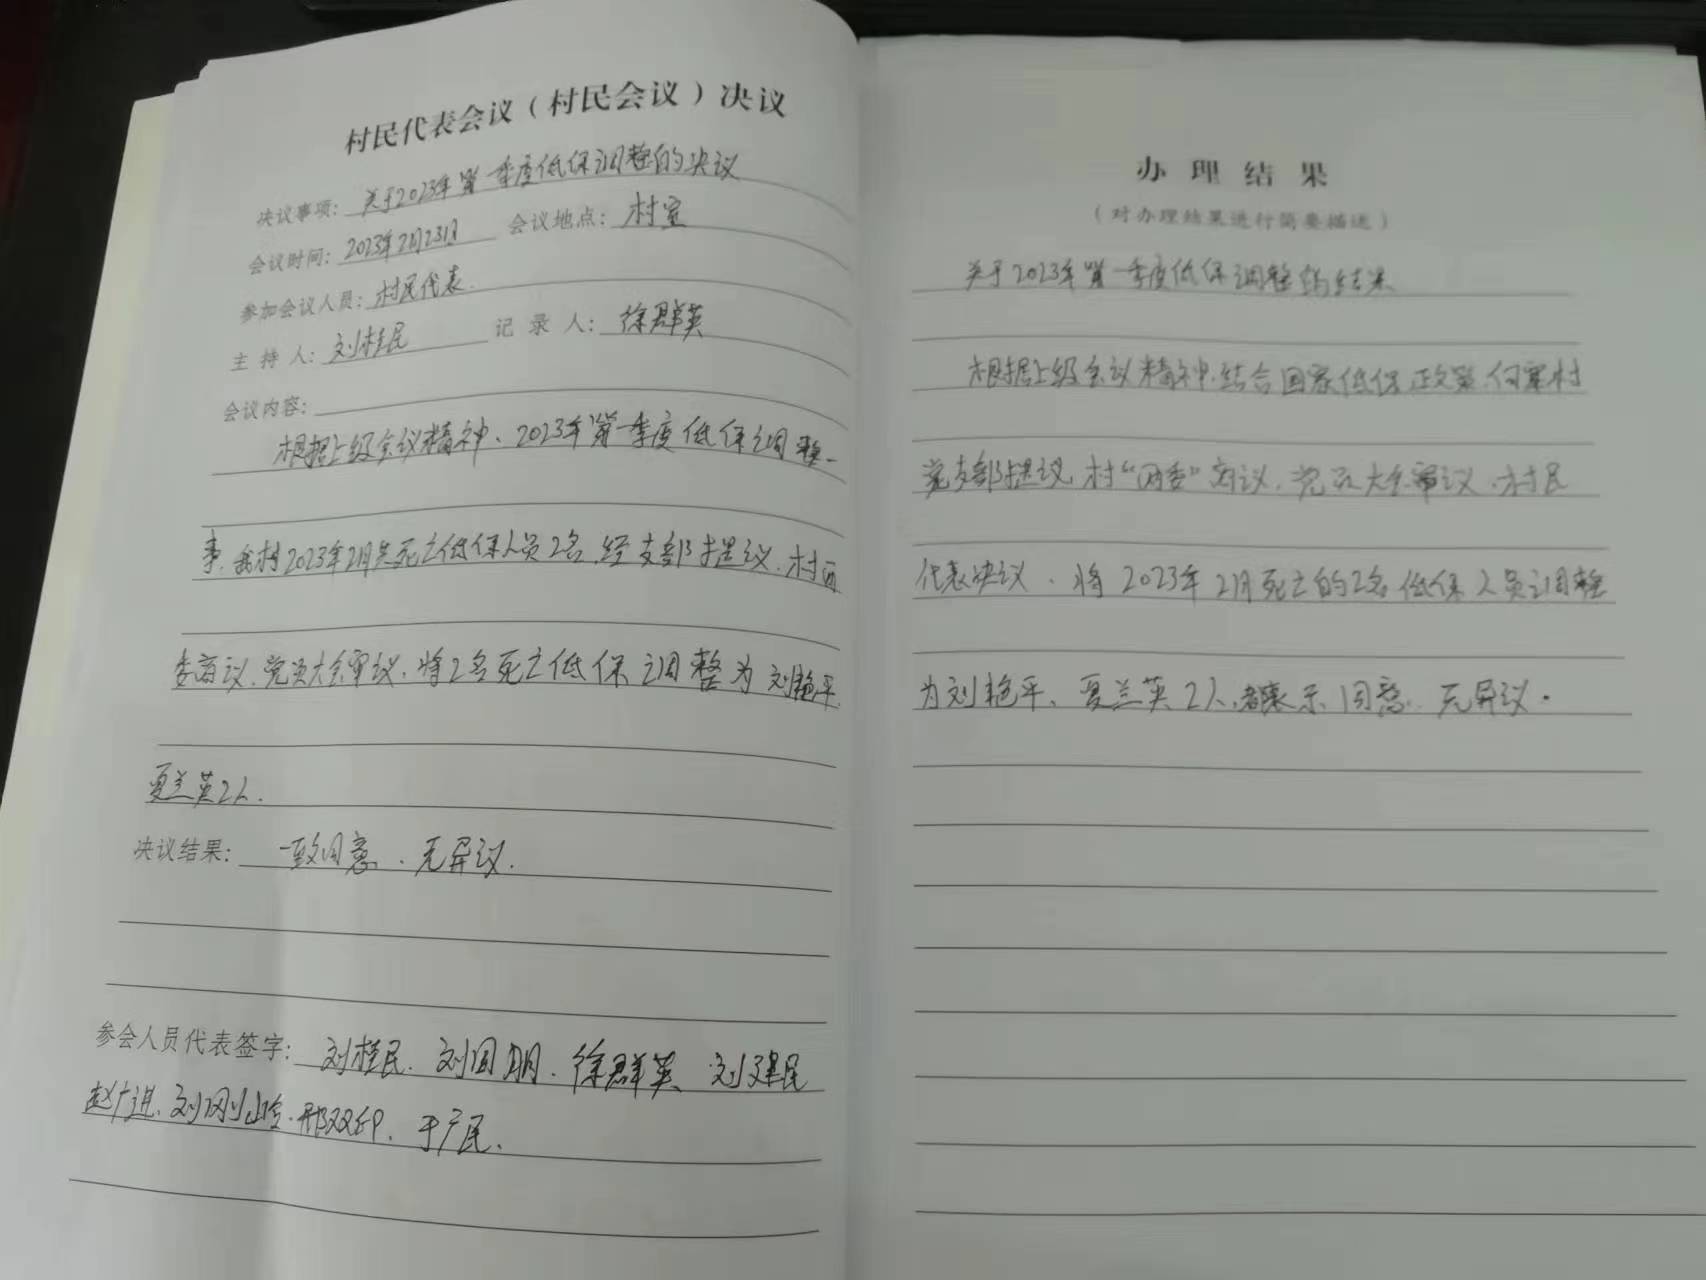 村民代表会议（村民会议）决议
决议事项：关于2023年第一季度低保调整的决议
会议时间：2023年2月23日 会议地点：村室
参加会议人员：村民代表.
主持人：刘桂民 记录人：徐群英
会议内容：
根据上级会议精神、2023年第一季度低保调整一
事,我村2023年2月共死亡低保人员2名,经支部提议、村两
委商议、党员大会审议、将2名死亡低保调整为刘艳平、
夏兰英2人.
决议结果：一致同意、无异议.
参会人员代表签字：刘桂民、刘国朋、徐群英 刘建民
赵广进、刘刚山、邢双印、于广民.
办理结果
（对办理结果进行简要描述）
关于2023年第一季度低保调整的结果
根据上级会议精神,结合国家低保政策,何寨村
党支部提议,村“两委”商议、党员大会审议、村民
代表决议、将2023年2月死亡的2名低保人员调整
为刘艳平、夏兰英2人,都表示同意、无异议.